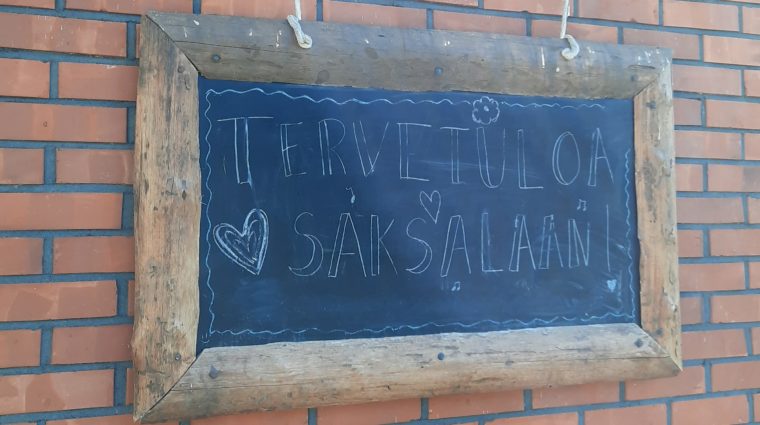 TERVETULOA
SAKSALAAN!